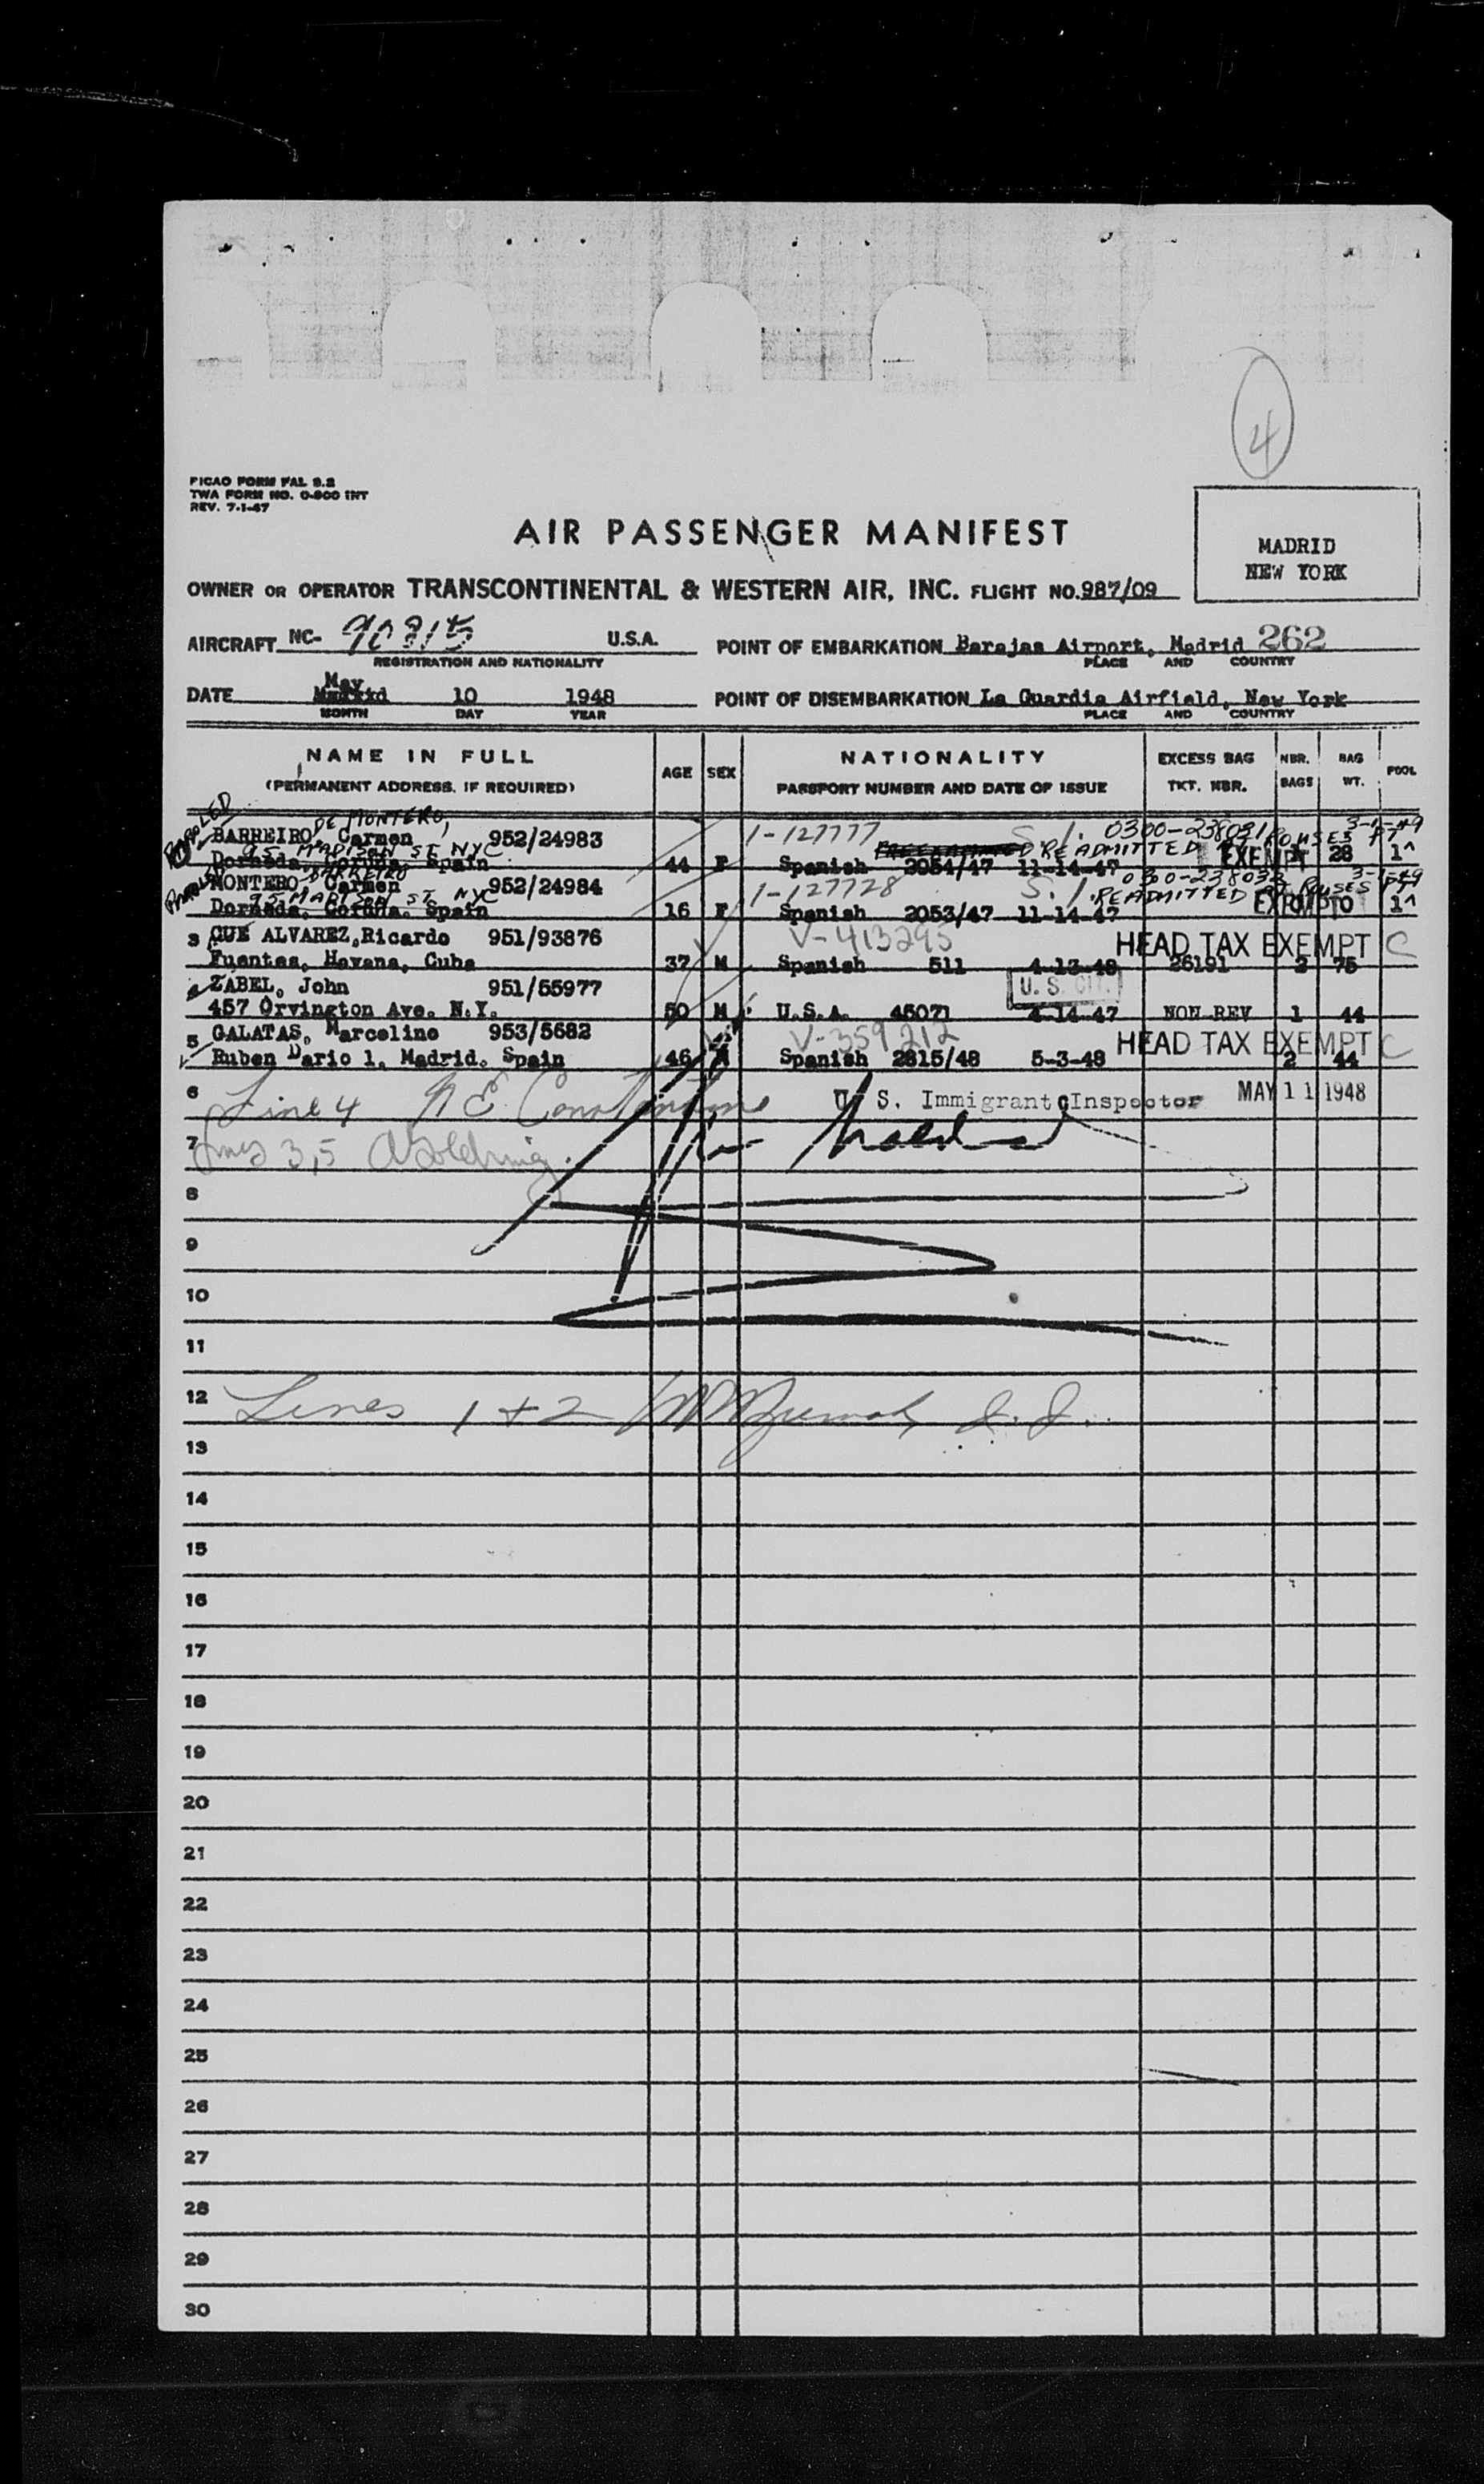 4
PICAO FORM FAL 9.2
TWA FORM NO. O-800 INT
REV. 7-1-47
AIR PASSENGER MANIFEST
MADRID
NEW YORK
OWNER OR OPERATOR TRANSCONTINENTAL & WESTERN AIR, INC. FLIGHT NO. 987/09
AIRCRAFT NC- 90815 U.S.A. POINT OF EMBARKATION Barajas Airport, Madrid 262
REGISTRATION AND NATIONALITY PLACE AND COUNTRY
May
DATE Madrid 10 1948 POINT OF DISEMBARKATION La Guardia Airfield, New York
MONTH DAY YEAR PLACE AND COUNTRY
NAME IN FULL AGE SEX NATIONALITY EXCESS BAG NBR. BAG POOL
(PERMANENT ADDRESS, IF REQUIRED) PASSPORT NUMBER AND DATE OF ISSUE TKT. NBR. BAGS WT.
PAROLED DE MONTERO, 1-127777 S.1. 0300-238031 3-1-49
BARREIRO, Carmen 952/24983 READMITTED AT ROUSES PT
95 MADISON ST. NYC
Dorneda, Coruña, Spain 44 F Spanish 2054/47 11-14-47 EXEMPT 28
PAROLED BARREIRO 1-127728 S.1. 0300-238032 3-1-49
MONTERO, Carmen 952/24984 READMITTED AT ROUSES PT
95 MADISON ST. NYC
Dorneda, Coruña, Spain 16 F Spanish 2053/47 11-14-47 EXEMPT
3 CUE ALVAREZ, Ricardo 951/93876 V-413295 HEAD TAX EXEMPT C
Fuentes, Havana, Cuba 37 M Spanish 511 4-13-48 26191 2 75
ZABEL, John 951/55977 U.S. CIT.
457 Orvington Ave. N.Y. 50 M U.S.A. 45071 4-14-47 NON REV 1 44
5 GALATAS, Marcelino 953/5682 V-359212 HEAD TAX EXEMPT C
Ruben Dario 1, Madrid. Spain 46 M Spanish 2815/48 5-3-48 2 44
6 Line 4 U. S. Immigrant Inspector MAY 11 1948
7 Lines 3,5
8
9
10
11
12 Lines 1 + 2
13
14
15
16
17
18
19
20
21
22
23
24
25
26
27
28
29
30